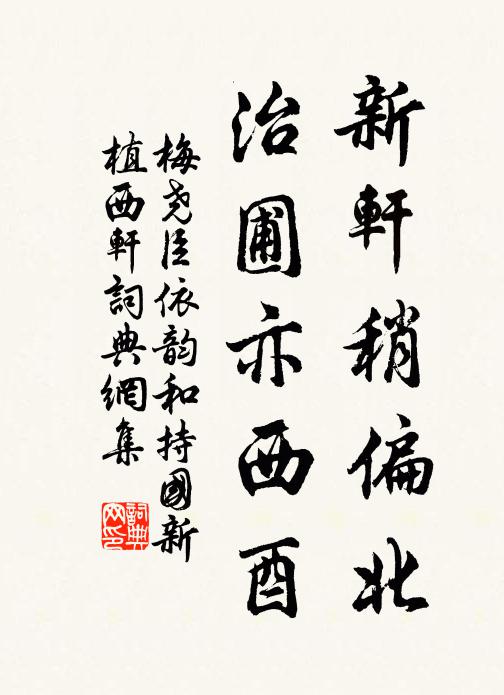 新軒稍偏北
治圃亦西酉
梅堯臣依韵和持國新
植西軒詞典網集
詞典
网印